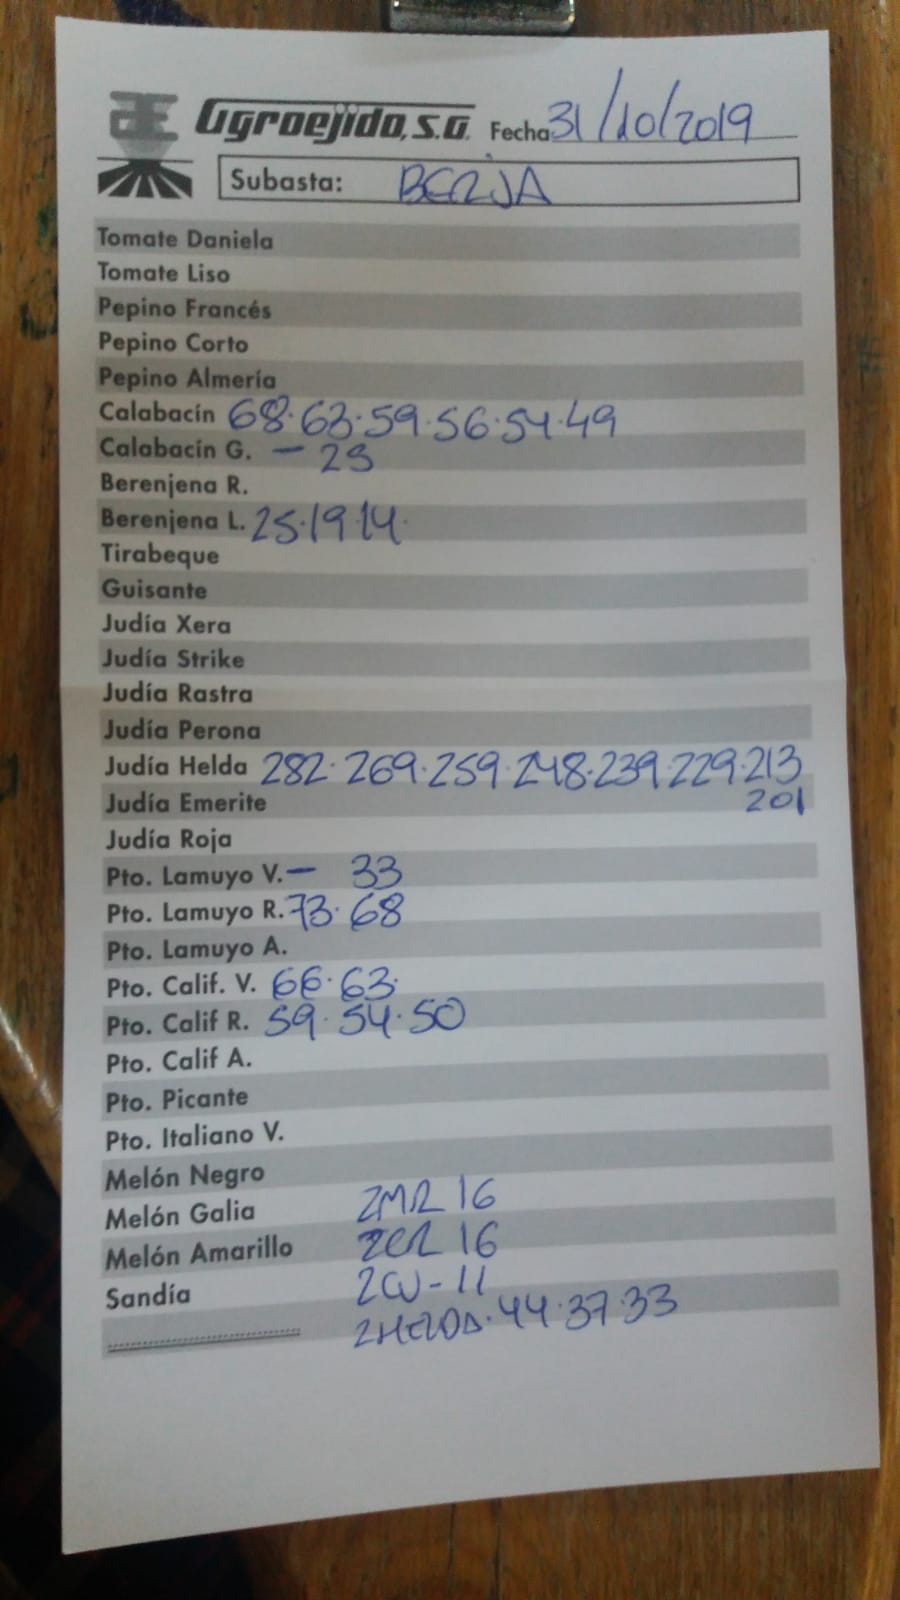 Agroejido, S.A. Fecha 31/10/2019
Subasta: BERJA
Tomate Daniela
Tomate Liso
Pepino Francés
Pepino Corto
Pepino Almería
Calabacín 68·63·59·56·54·49
Calabacín G. - 29
Berenjena R.
Berenjena L. 25·19·14·
Tirabeque
Guisante
Judía Xera
Judía Strike
Judía Rastra
Judía Perona
Judía Helda 282·269·259·248·239·229·213
Judía Emerite 201
Judía Roja
Pto. Lamuyo V. - 33
Pto. Lamuyo R. 73·68
Pto. Lamuyo A.
Pto. Calif. V. 66·63·
Pto. Calif R. 59·54·50
Pto. Calif A.
Pto. Picante
Pto. Italiano V.
Melón Negro
Melón Galia 2MR 16
Melón Amarillo 2CR 16
Sandía 2CV-11
2HELDA·44·37·33